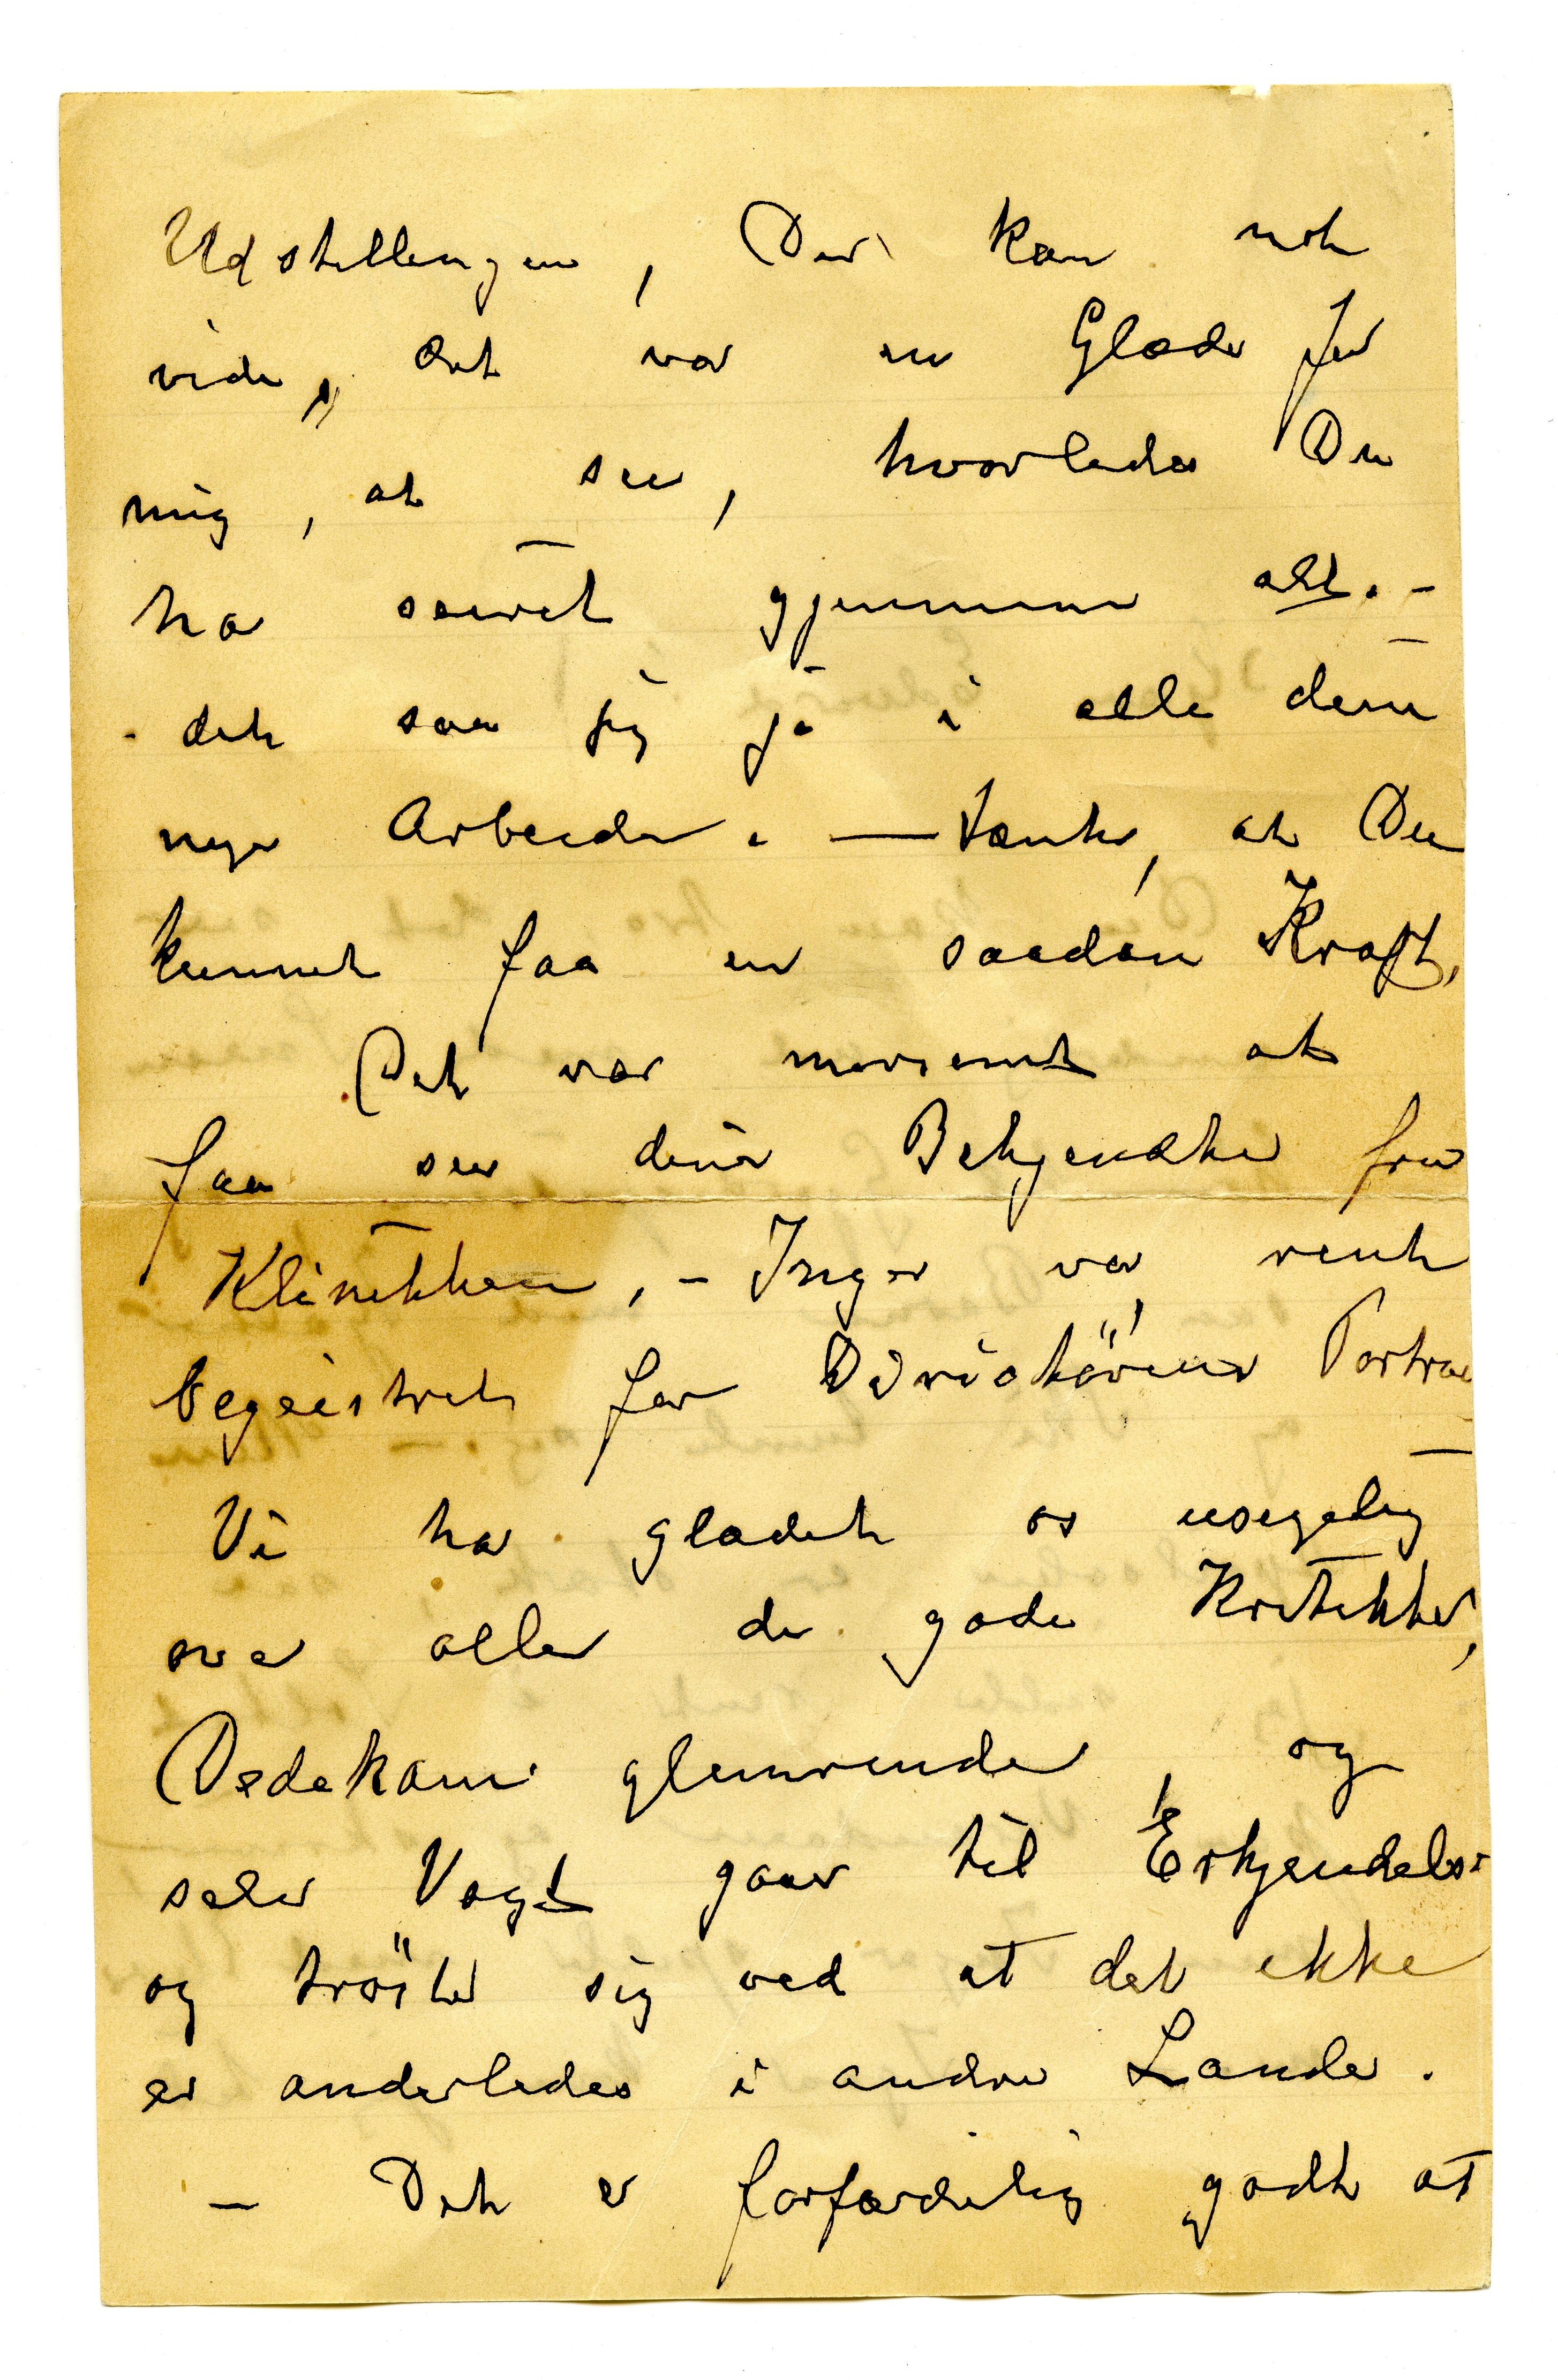 Udstillingen, Du kan nok
vide, det var en Glæde for
mig, at see, hvorledes Du
har seiret gjennem alt. –
– det saa jeg jo i alle dine
nye Arbeider. — tænk, at Du
kunnet faa en saadan Kraft,
Det var morsomt at
faa see dine Bekjendte fra
Klinikken, – Inger var rent
begeistret for Direktörens Portræ
Vi har glædet os usigelig
over alle de gode Kritikker,
Dedekam glimrende, og
selv Vogt gaar til Erkjendelse
og tröster sig ved at det ikke
er anderledes i andre Lande.
– Det er forfærdelig godt at